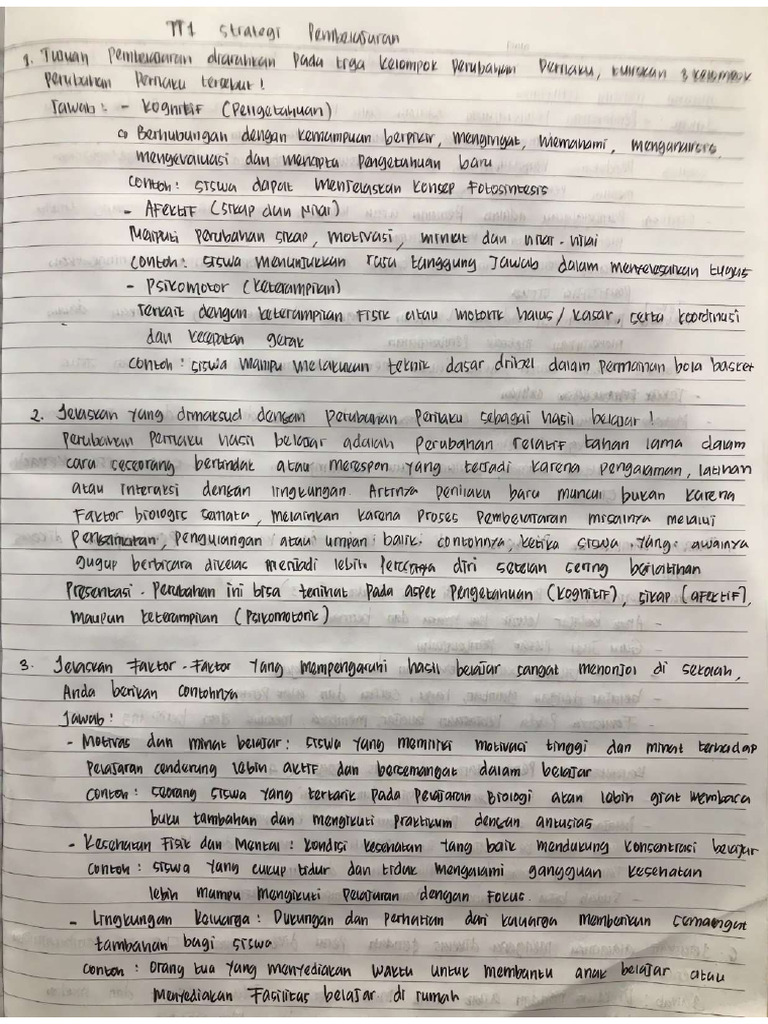 TT1 Strategi Pembelajaran
1. Tujuan Pembelajaran diarahkan pada tiga kelompok perubahan Perilaku, uraikan 3 kelompok
perubahan Perilaku tersebut!
Jawab: - Kognitif (Pengetahuan)
Berhubungan dengan kemampuan berpikir, mengingat, memahami, menganalisis,
mengevaluasi dan mencipta Pengetahuan baru
Contoh: siswa dapat menjelaskan Konsep Fotosintesis
- Afektif (Sikap dan Nilai)
Meliputi perubahan sikap, motivasi, minat dan nilai-nilai
Contoh: siswa menunjukkan rasa tanggung jawab dalam menyelesaikan tugas
- Psikomotor (keterampilan)
Terkait dengan keterampilan Fisik atau motorik halus/kasar, serta koordinasi
dan kecepatan gerak
Contoh: siswa mampu melakukan teknik dasar dribel dalam permainan bola basket
2. Jelaskan yang dimaksud dengan perubahan perilaku sebagai hasil belajar!
Perubahan Perilaku hasil belajar adalah perubahan relatif tahan lama dalam
cara seseorang bertindak atau merespon yang terjadi karena pengalaman, latihan
atau interaksi dengan lingkungan. Artinya perilaku baru muncul bukan karena
Faktor biologis semata, melainkan karena Proses Pembelajaran misalnya melalui
pengamatan, pengulangan atau umpan balik. contohnya, ketika siswa yang awalnya
gugup berbicara dikelas menjadi lebih Percaya diri setelah sering berlatihan
Presentasi. Perubahan ini bisa terlihat pada aspek Pengetahuan (Kognitif), sikap (afektif),
maupun keterampilan (Psikomotorik)
3. Jelaskan Faktor-Faktor yang mempengaruhi hasil belajar sangat menonjol di sekolah,
Anda berikan contohnya
Jawab:
- Motivas dan minat belajar: siswa yang memiliki motivasi tinggi dan minat terhadap
pelajaran cenderung lebih aktif dan bersemangat dalam belajar
Contoh: seorang siswa yang tertarik pada pelajaran Biologi akan lebih giat membaca
buku tambahan dan mengikuti praktikum dengan antusias
- Kesehatan Fisik dan Mental: kondisi kesehatan yang baik mendukung konsentrasi belajar
Contoh: siswa yang cukup tidur dan tidak mengalami gangguan kesehatan
lebih mampu mengikuti pelajaran dengan Fokus.
- Lingkungan Keluarga: Dukungan dan perhatian dari keluarga memberikan semangat
tambahan bagi siswa
Contoh: Orang tua yang menyediakan waktu untuk membantu anak belajar atau
Menyediakan Fasilitas belajar di rumah